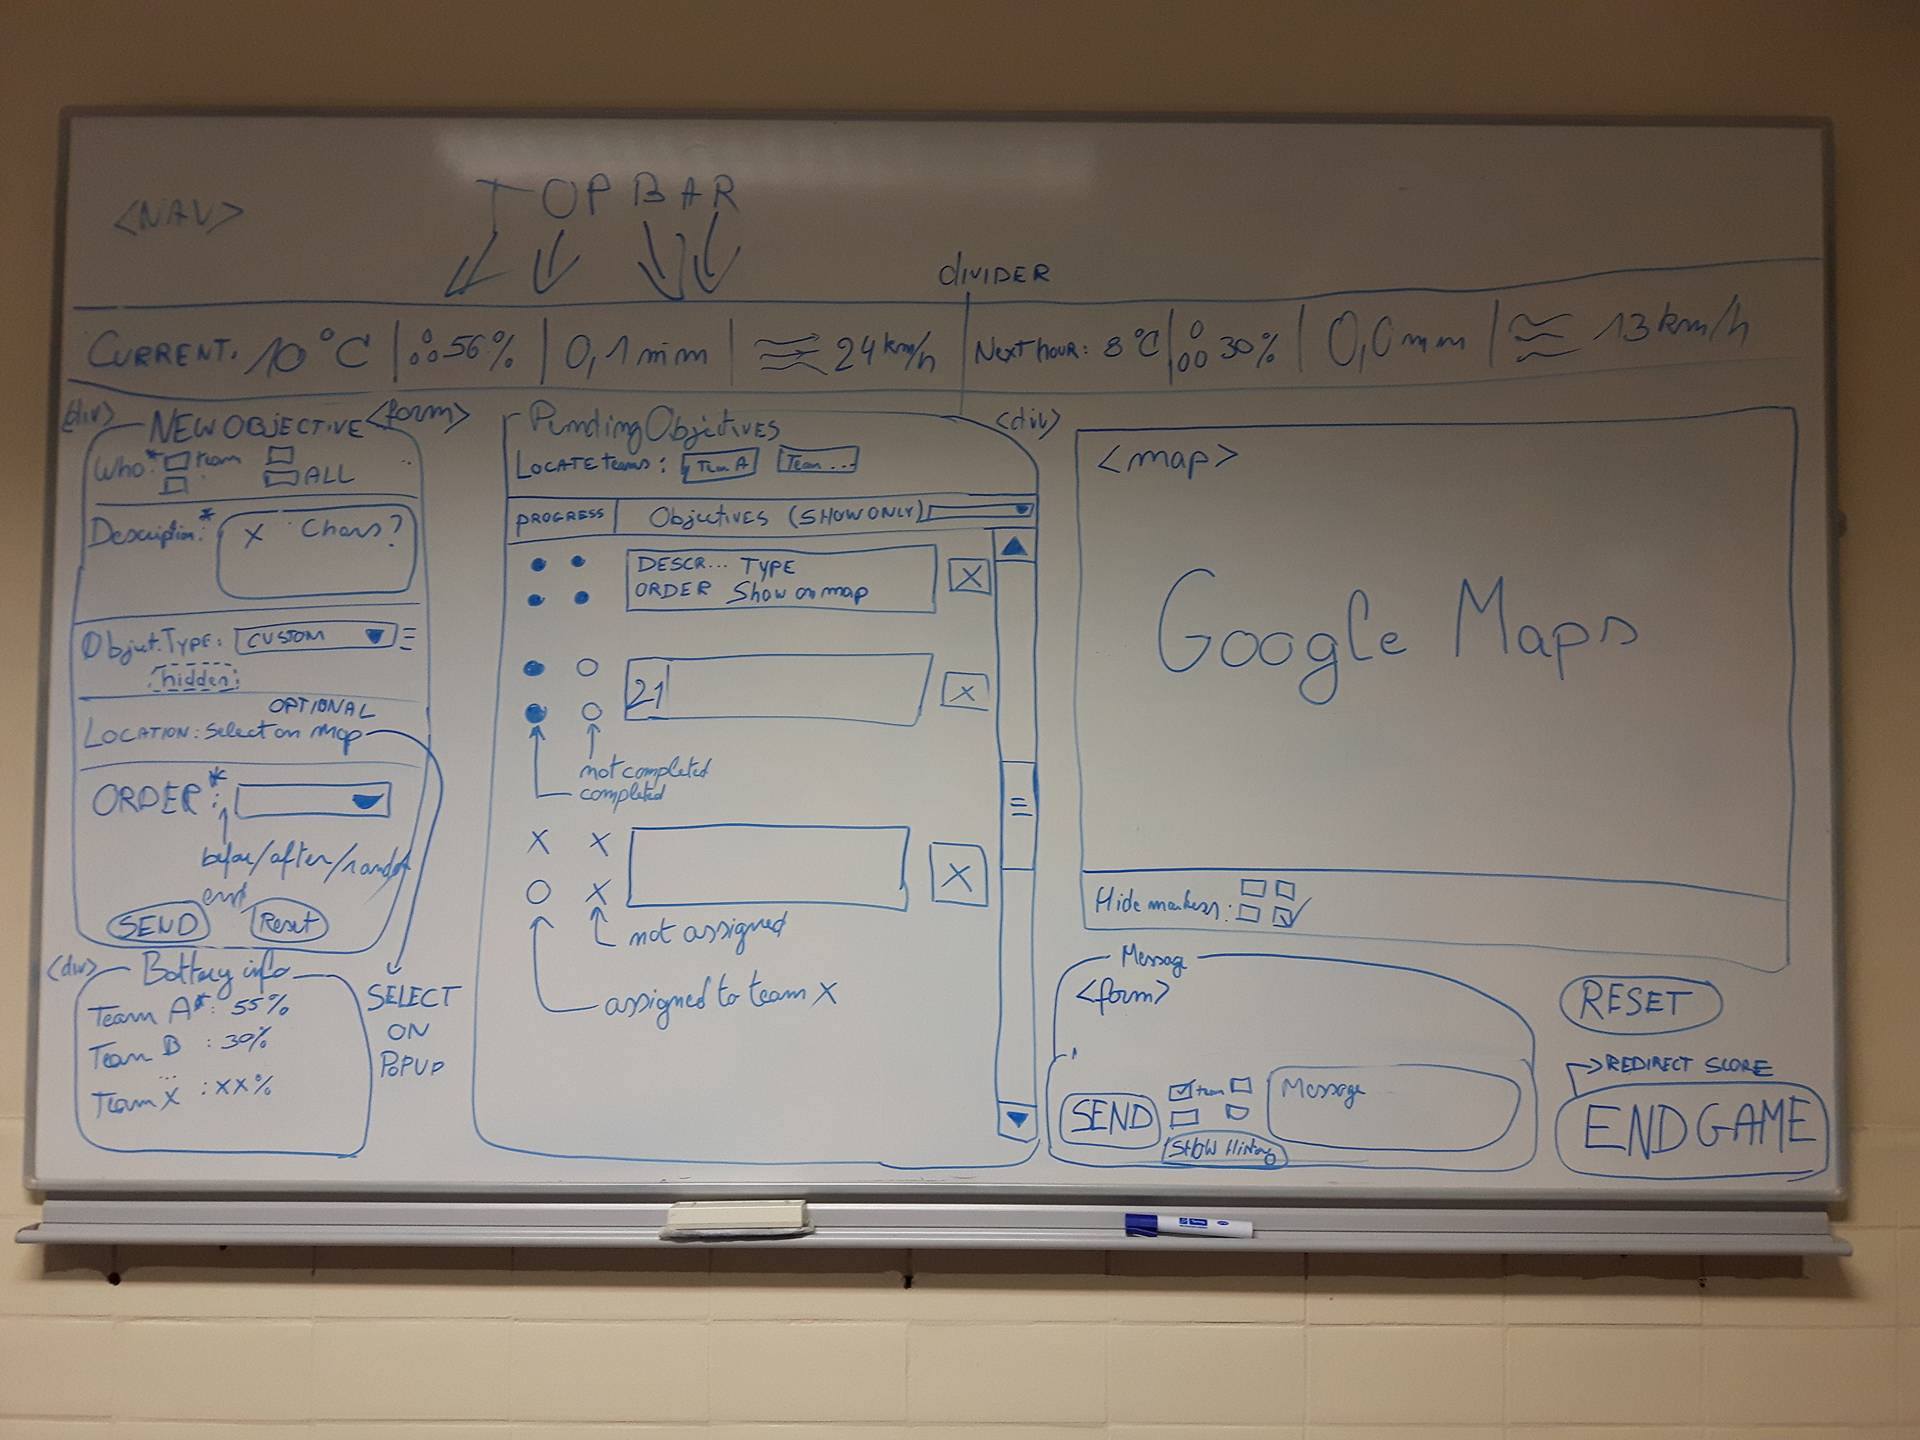 <NAV>
TOP BAR
dIVIDER
CURRENT: 10°C | 56% | 0,1mm | 24 km/h
Next hour: 8°C | 30% | 0,0mm | 13 km/h
<div>
NEW OBJECTIVE <form>
Who*: team
ALL
Description*: X Chars?
Object.Type: CUSTOM
hidden
OPTIONAL
LOCATION: Select on map
ORDER*:
before/after/random
end
SEND Reset
<div> Battery info
Team A*: 55%
Team B : 30%
...
Team X : XX%
SELECT
ON
POPUP
Pending Objectives <div>
LOCATE teams: Team A Team ...
PROGRESS Objectives (SHOW ONLY)
DESCR... TYPE
ORDER Show on map
X
21
X
not completed
completed
X X
X
O X
not assigned
assigned to team X
<map>
Google Maps
Hide markers:
Message
<form>
team
Message
SEND
SHOW History
RESET
REDIRECT SCORE
END GAME